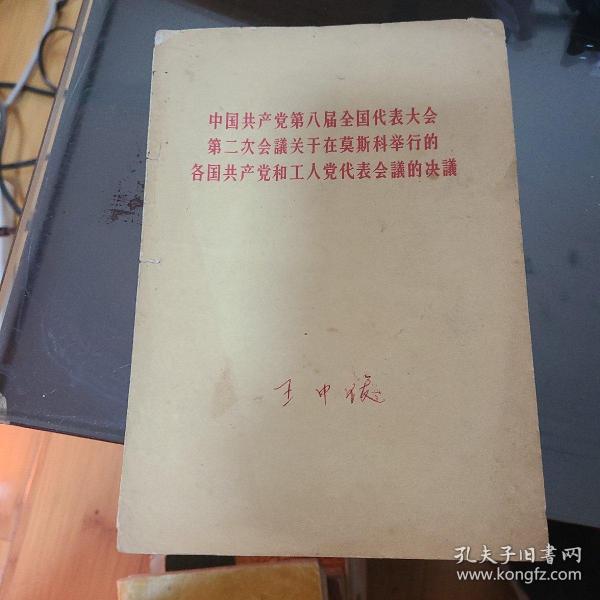 中国共产党第八届全国代表大会
第二次会議关于在莫斯科举行的
各国共产党和工人党代表会議的决議
王中
孔夫子旧书网
www.kongfz.com